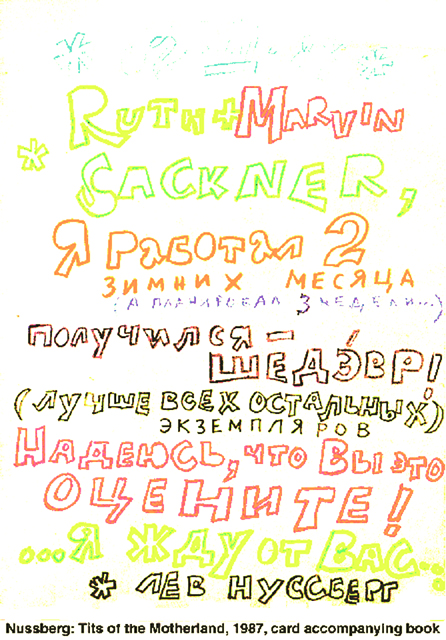 Ruth + Marvin
Sackner,
Я работал 2
зимних месяца
(а планировал 3 недели...)
получился —
шедэ́вр!
(лучше всех остальных)
экземпляров
Надеюсь, что Вы это
оцените!
...я жду от Вас...
* Лев Нуссберг
Nussberg: Tits of the Motherland, 1987, card accompanying book